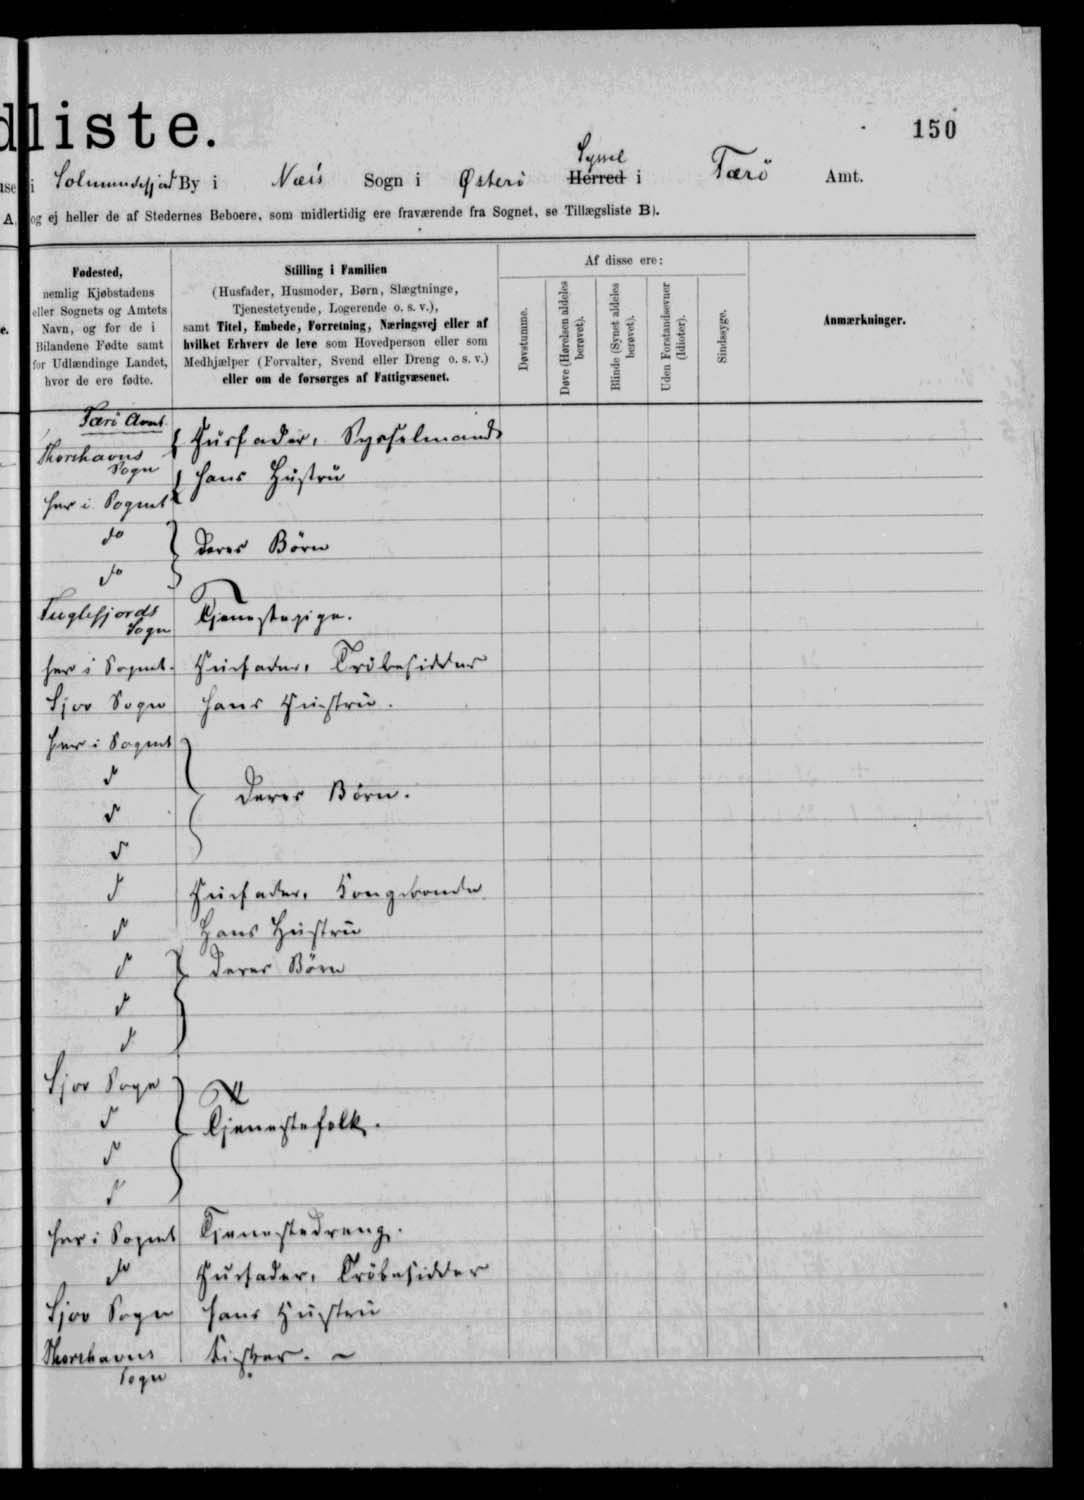 dliste.
150
Syssel
i Solmundefjord By i Næs Sogn i Østerö Herred i Færö Amt.
A, og ej heller de af Stedernes Beboere, som midlertidig ere fraværende fra Sognet, se Tillægsliste B).
Fødested,
nemlig Kjøbstadens
eller Sognets og Amtets
Navn, og for de i
Bilandene Fødte samt
for Udlændinge Landet,
hvor de ere fødte.
Stilling i Familien
(Husfader, Husmoder, Børn, Slægtninge,
Tjenestetyende, Logerende o. s. v.),
samt Titel, Embede, Forretning, Næringsvej eller af
hvilket Erhverv de leve som Hovedperson eller som
Medhjælper (Forvalter, Svend eller Dreng o. s. v.)
eller om de forsørges af Fattigvæsenet.
Af disse ere:
Døvstumme.
Døve (Hørelsen aldeles
berøvet).
Blinde (Synet aldeles
berøvet).
Uden Forstandsevner
(Idioter).
Sindssyge.
Anmærkninger.
Færö Amt
Thorshavns
Sogn
Husfader, Sysselmand
her i Sognet
hans Hustru
do
do
deres Börn
Fuglefjords
Sogn
Tjenestepige.
her i Sognet.
Husfader,
Sjov Sogn
hans Hustru.
her i Sognet
d
d
d
deres Börn.
d
Husfader, Kongsbonde
d
Hans Hustru
d
deres Börn
d
d
Sjov Sogn
d
d
d
Tjenestefolk.
her i Sognet
Tjenestedreng.
do
Husfader,
Sjov Sogn
hans Hustru
Thorshavns
Sogn